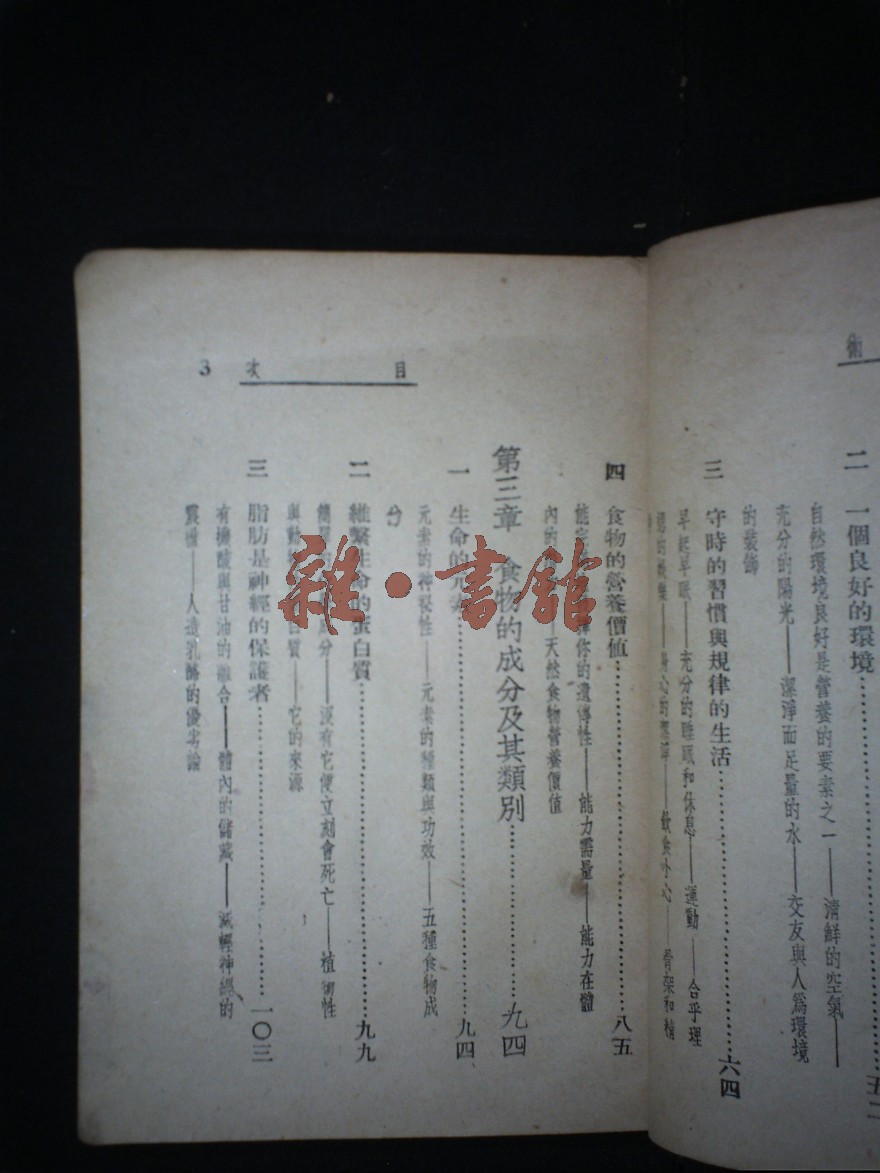 術
二 一個良好的環境……五二
自然環境良好是營養的要素之一——清鮮的空氣——
充分的陽光——潔淨而足量的水——交友與人爲環境
的裝飾
三 守時的習慣與規律的生活……六四
早起早眠——充分的睡眠和休息——運動——合乎理
飲食
骨架和精
目次
3
四 食物的營養價值……八五
你的遺傳性——能力需量——能力在體
內的
天然食物營養價值
第三章 食物的成分及其類別……九四
一 生命的元素……九四
元素的神秘性——元素的種類與功效——五種食物成
分
二 維繫生命的蛋白質……九九
分——沒有它便立刻會死亡——植物性
與動 白質——它的來源
三 脂肪是神經的保護者……一〇三
有機酸與甘油的融合——體內的儲藏——減輕神經的
震撞——人造乳酪的優劣論
雜·書館